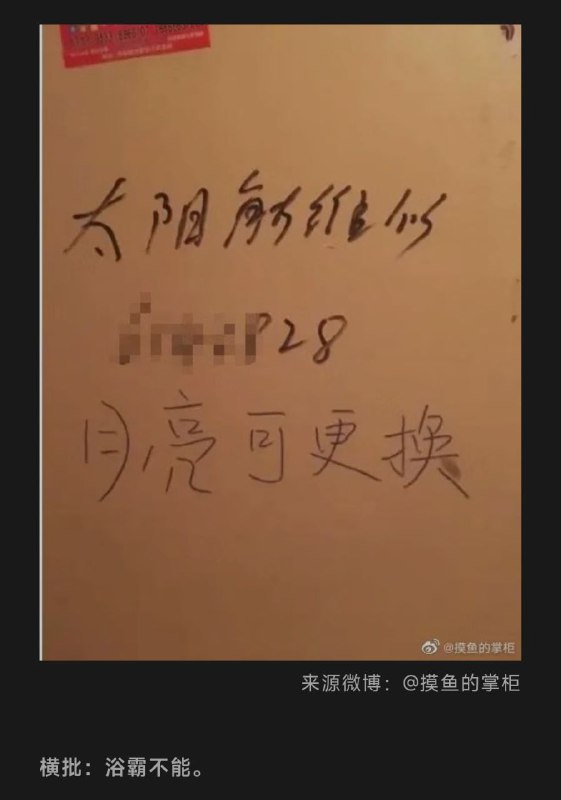 太阳能维修
828
月亮可更换
@摸鱼的掌柜
来源微博：@摸鱼的掌柜
横批：浴霸不能。